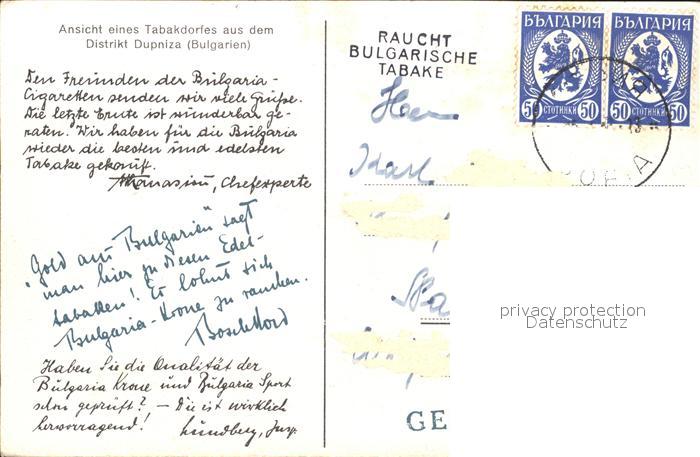 Ansicht eines Tabakdorfes aus dem
Distrikt Dupniza (Bulgarien)
Den Freunden der Bulgaria-
Cigaretten senden wir viele Grüsse.
Die letzte Ernte ist wunderbar ge-
raten. Wir haben für die Bulgaria
wieder die besten und edelsten
Tabake gekauft.
Athanasiou, Chefexperte
"Gold aus Bulgarien" sagt
man hier zu diesen Edel-
tabaken! Es lohnt sich
Bulgaria-Krone zu rauchen.
Haben Sie die Qualität der
Bulgaria Krone und Bulgaria Sport
schon geprüft? – Die ist wirklich
hervorragend!
Lundberg,
RAUCHT
BULGARISCHE
TABAKE
БЪЛГАРИЯ
50 СТОТИНКИ 50
БЪЛГАРИЯ
50 СТОТИНКИ 50
Herrn
Karl
GE
privacy protection
Datenschutz